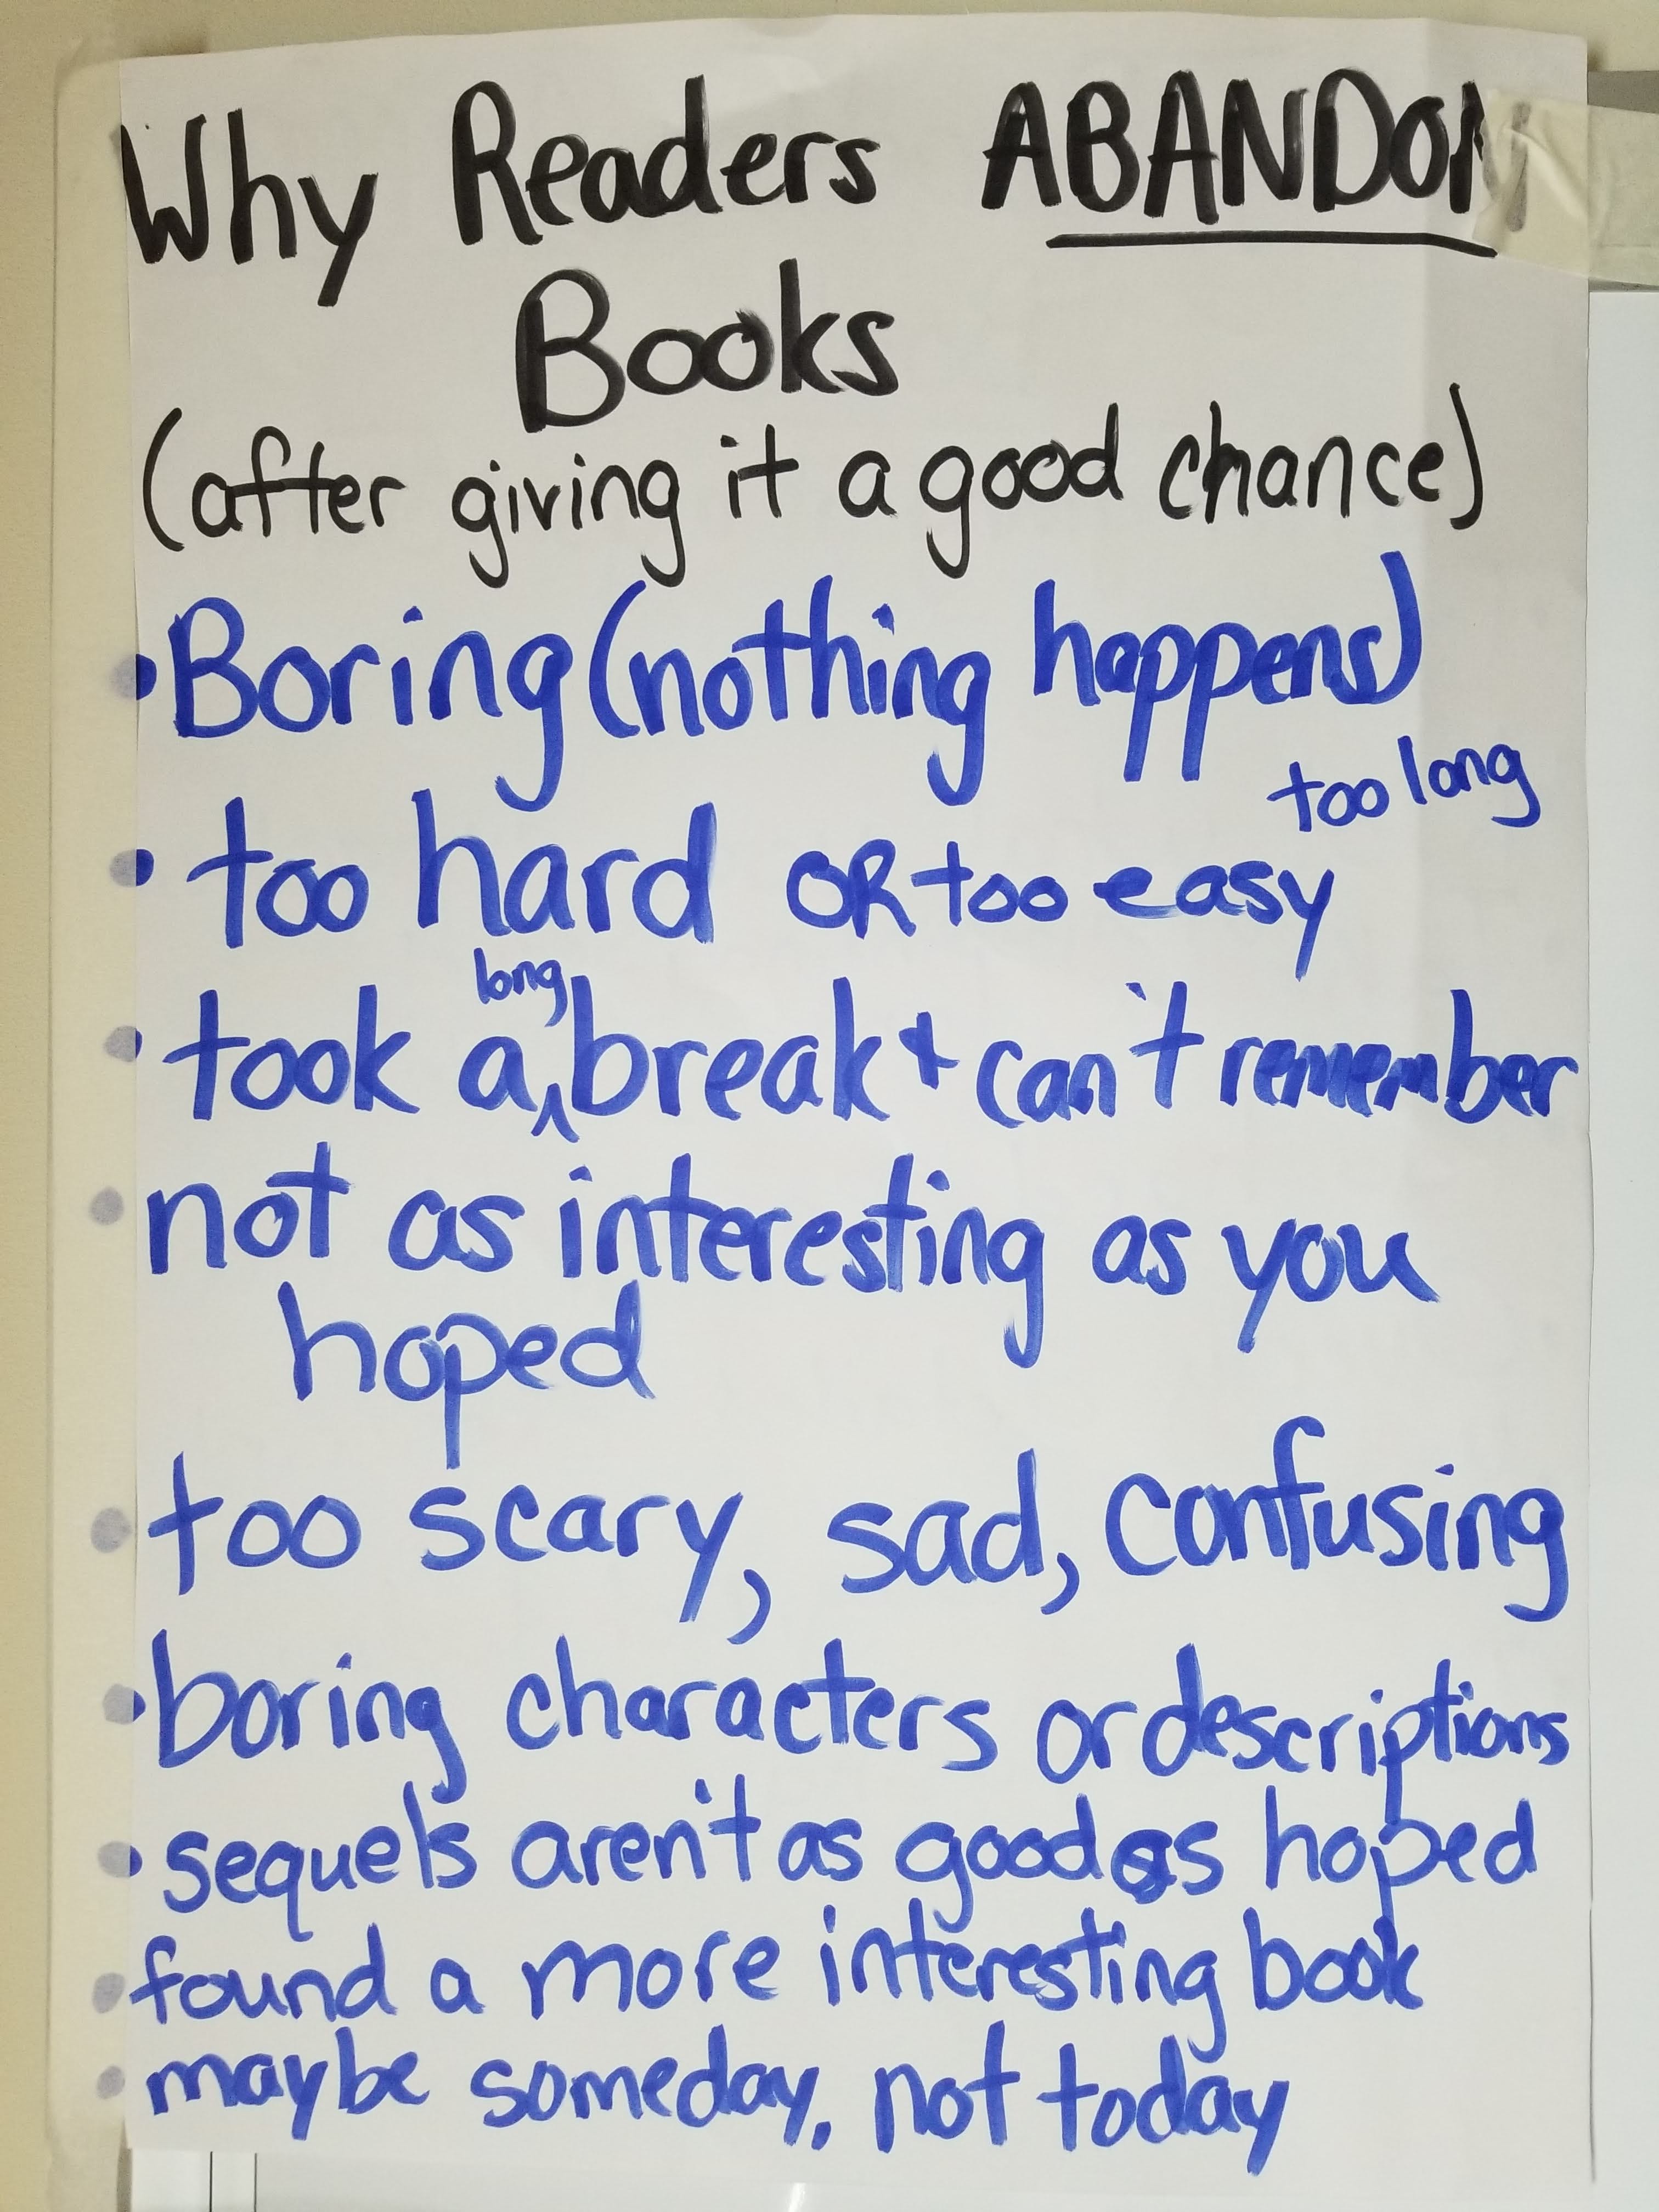 Why Readers ABANDON
Books
(after giving it a good chance)
• Boring (nothing happens)
too long
• too hard OR too easy
long
• took a ^ break + can't remember
• not as interesting as you
hoped
• too scary, sad, confusing
• boring characters or descriptions
• sequels aren't as good as hoped
• found a more interesting book
• maybe someday, not today